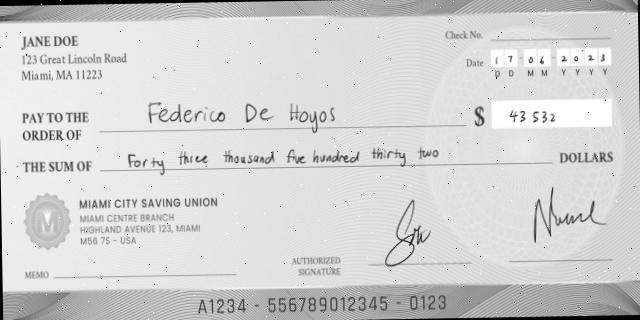 JANE DOE
123 Great Lincoln Road
Miami, MA 11223
Check No.
Date 17 06 2023
D D M M Y Y Y Y
PAY TO THE ORDER OF Federico De Hoyos $ 43 532
THE SUM OF Forty three thousand five hundred thirty two DOLLARS
M
MIAMI CITY SAVING UNION
MIAMI CENTRE BRANCH
HIGHLAND AVENUE 123, MIAMI
M56 7S - USA
MEMO
AUTHORIZED SIGNATURE
A1234 - 556789012345 - 0123